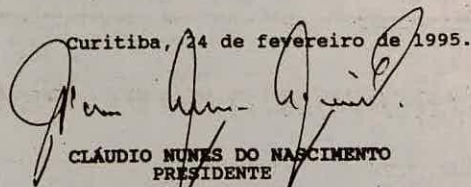 Curitiba, 24 de fevereiro de 1995.
CLÁUDIO NUNES DO NASCIMENTO
PRESIDENTE